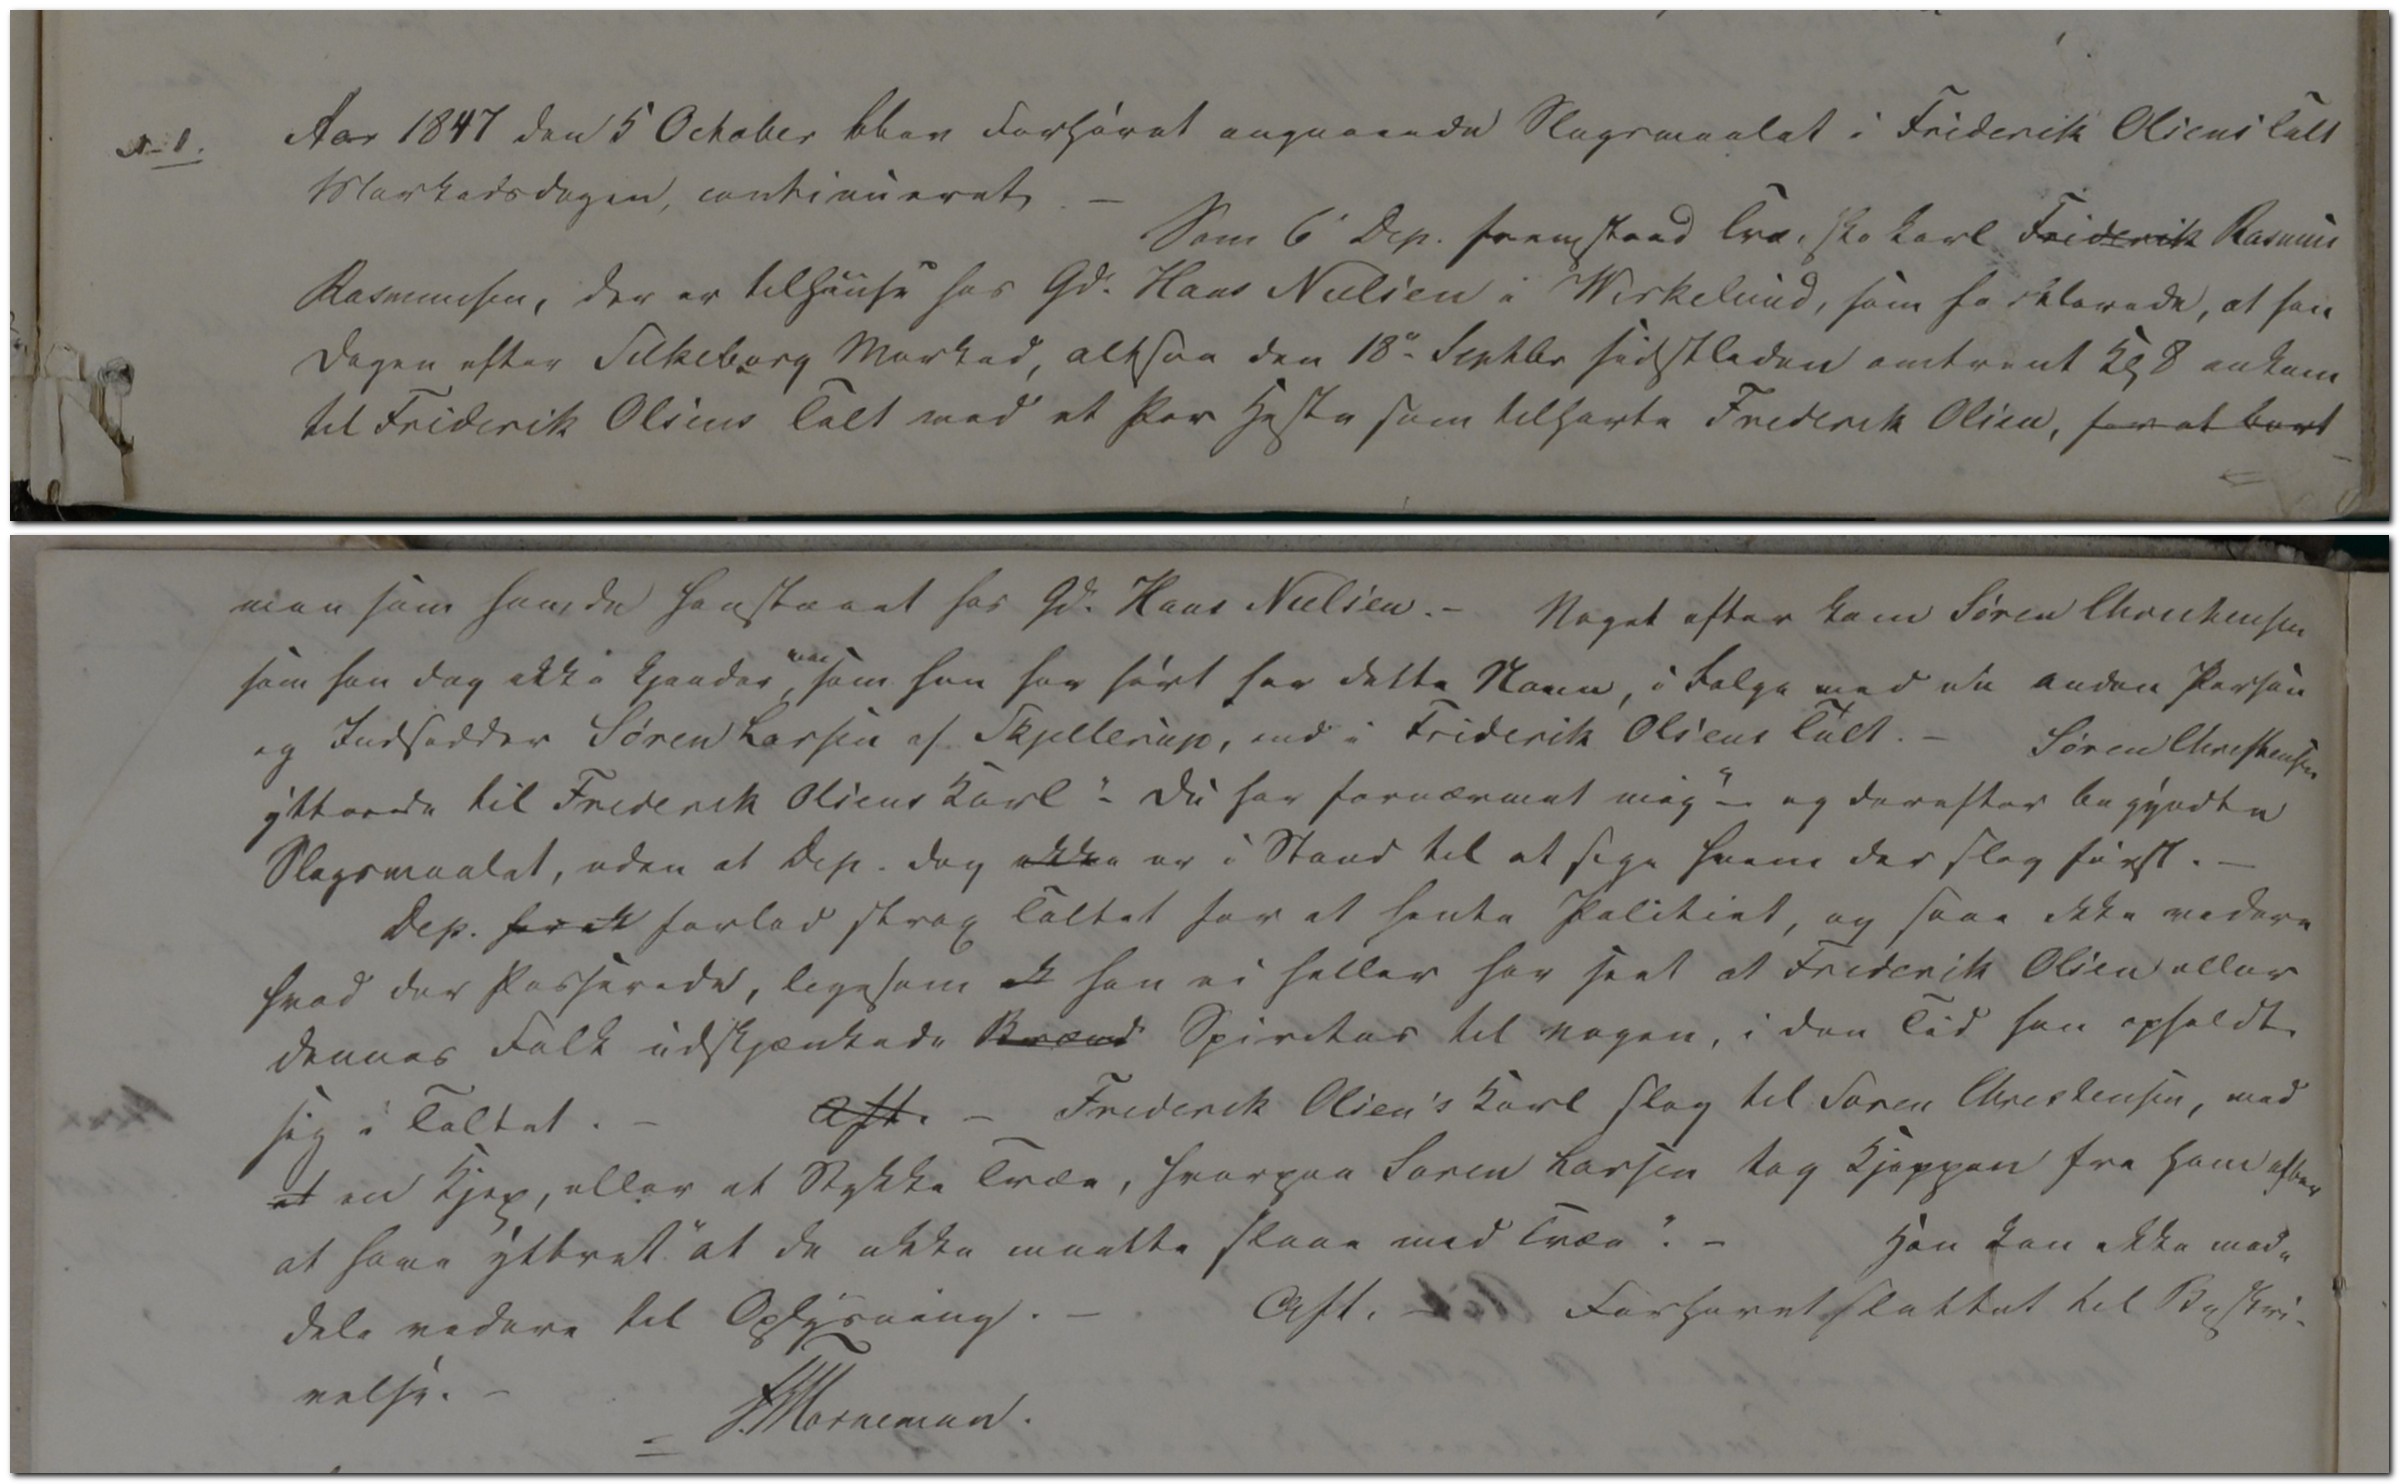 N. 1. Aar 1847 den 5 October blev Forhøret angaaende Slagsmaalet i Friderik Olsens Telt
Markedsdagen, continueret. –
Som 6te Dep. fremstaaed Træskokarl Friderik Rasmus
Rasmussen, der er tilhuuse hos Gd. Hans Nielsen i Wirkelund, som forklarede, at han
Dagen efter Silkeborg Marked, altsaa den 18de Septbr sidstleden omtrent Kl 8 ankom
til Friderik Olsens Telt med et Par Heste som tilhørte Frederik Olsen, for at bort
men som havde henstaaet hos Gd. Hans Nielsen. – Noget efter kom Søren Christensen
som han dog ikke kjender, men som han har hørt har dette Navn, i Følge med en anden Person
og Indsidder Søren Larsen af Skjellerup, ind i Friderik Olsens Telt. – Søren Christensen
yttrede til Frederik Olsens Karl "– Du har fornærmet mig" – og derefter begyndte
Slagsmaalet, uden at Dep. dog ikke er i Stand til at sige hvem der slog først. –
Dep. forlod strax Teltet for at hente Politiet, og saae ikke videre
hvad der Passerede, ligesom han ei heller har seet at Friderik Olsen eller
dennes Folk udskjænkede Brænd Spiritus til nogen, i den Tid han opholdt
sig i Teltet. – Aft. – Frederik Olsen's Karl slog til Søren Christensen, med
et en Kjep, eller et Stykke Træe, hvorpaa Søren Larsen tog Kjeppen fra ham efter
at have yttret "at de ikke maatte slaae med Træe". – Han kan ikke med-
dele videre til Oplysning. – Aft. – Forhøret sluttet til Beskri-
velse. –
Morneman.